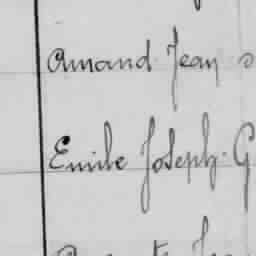 Amand Jean
Emile Joseph. G